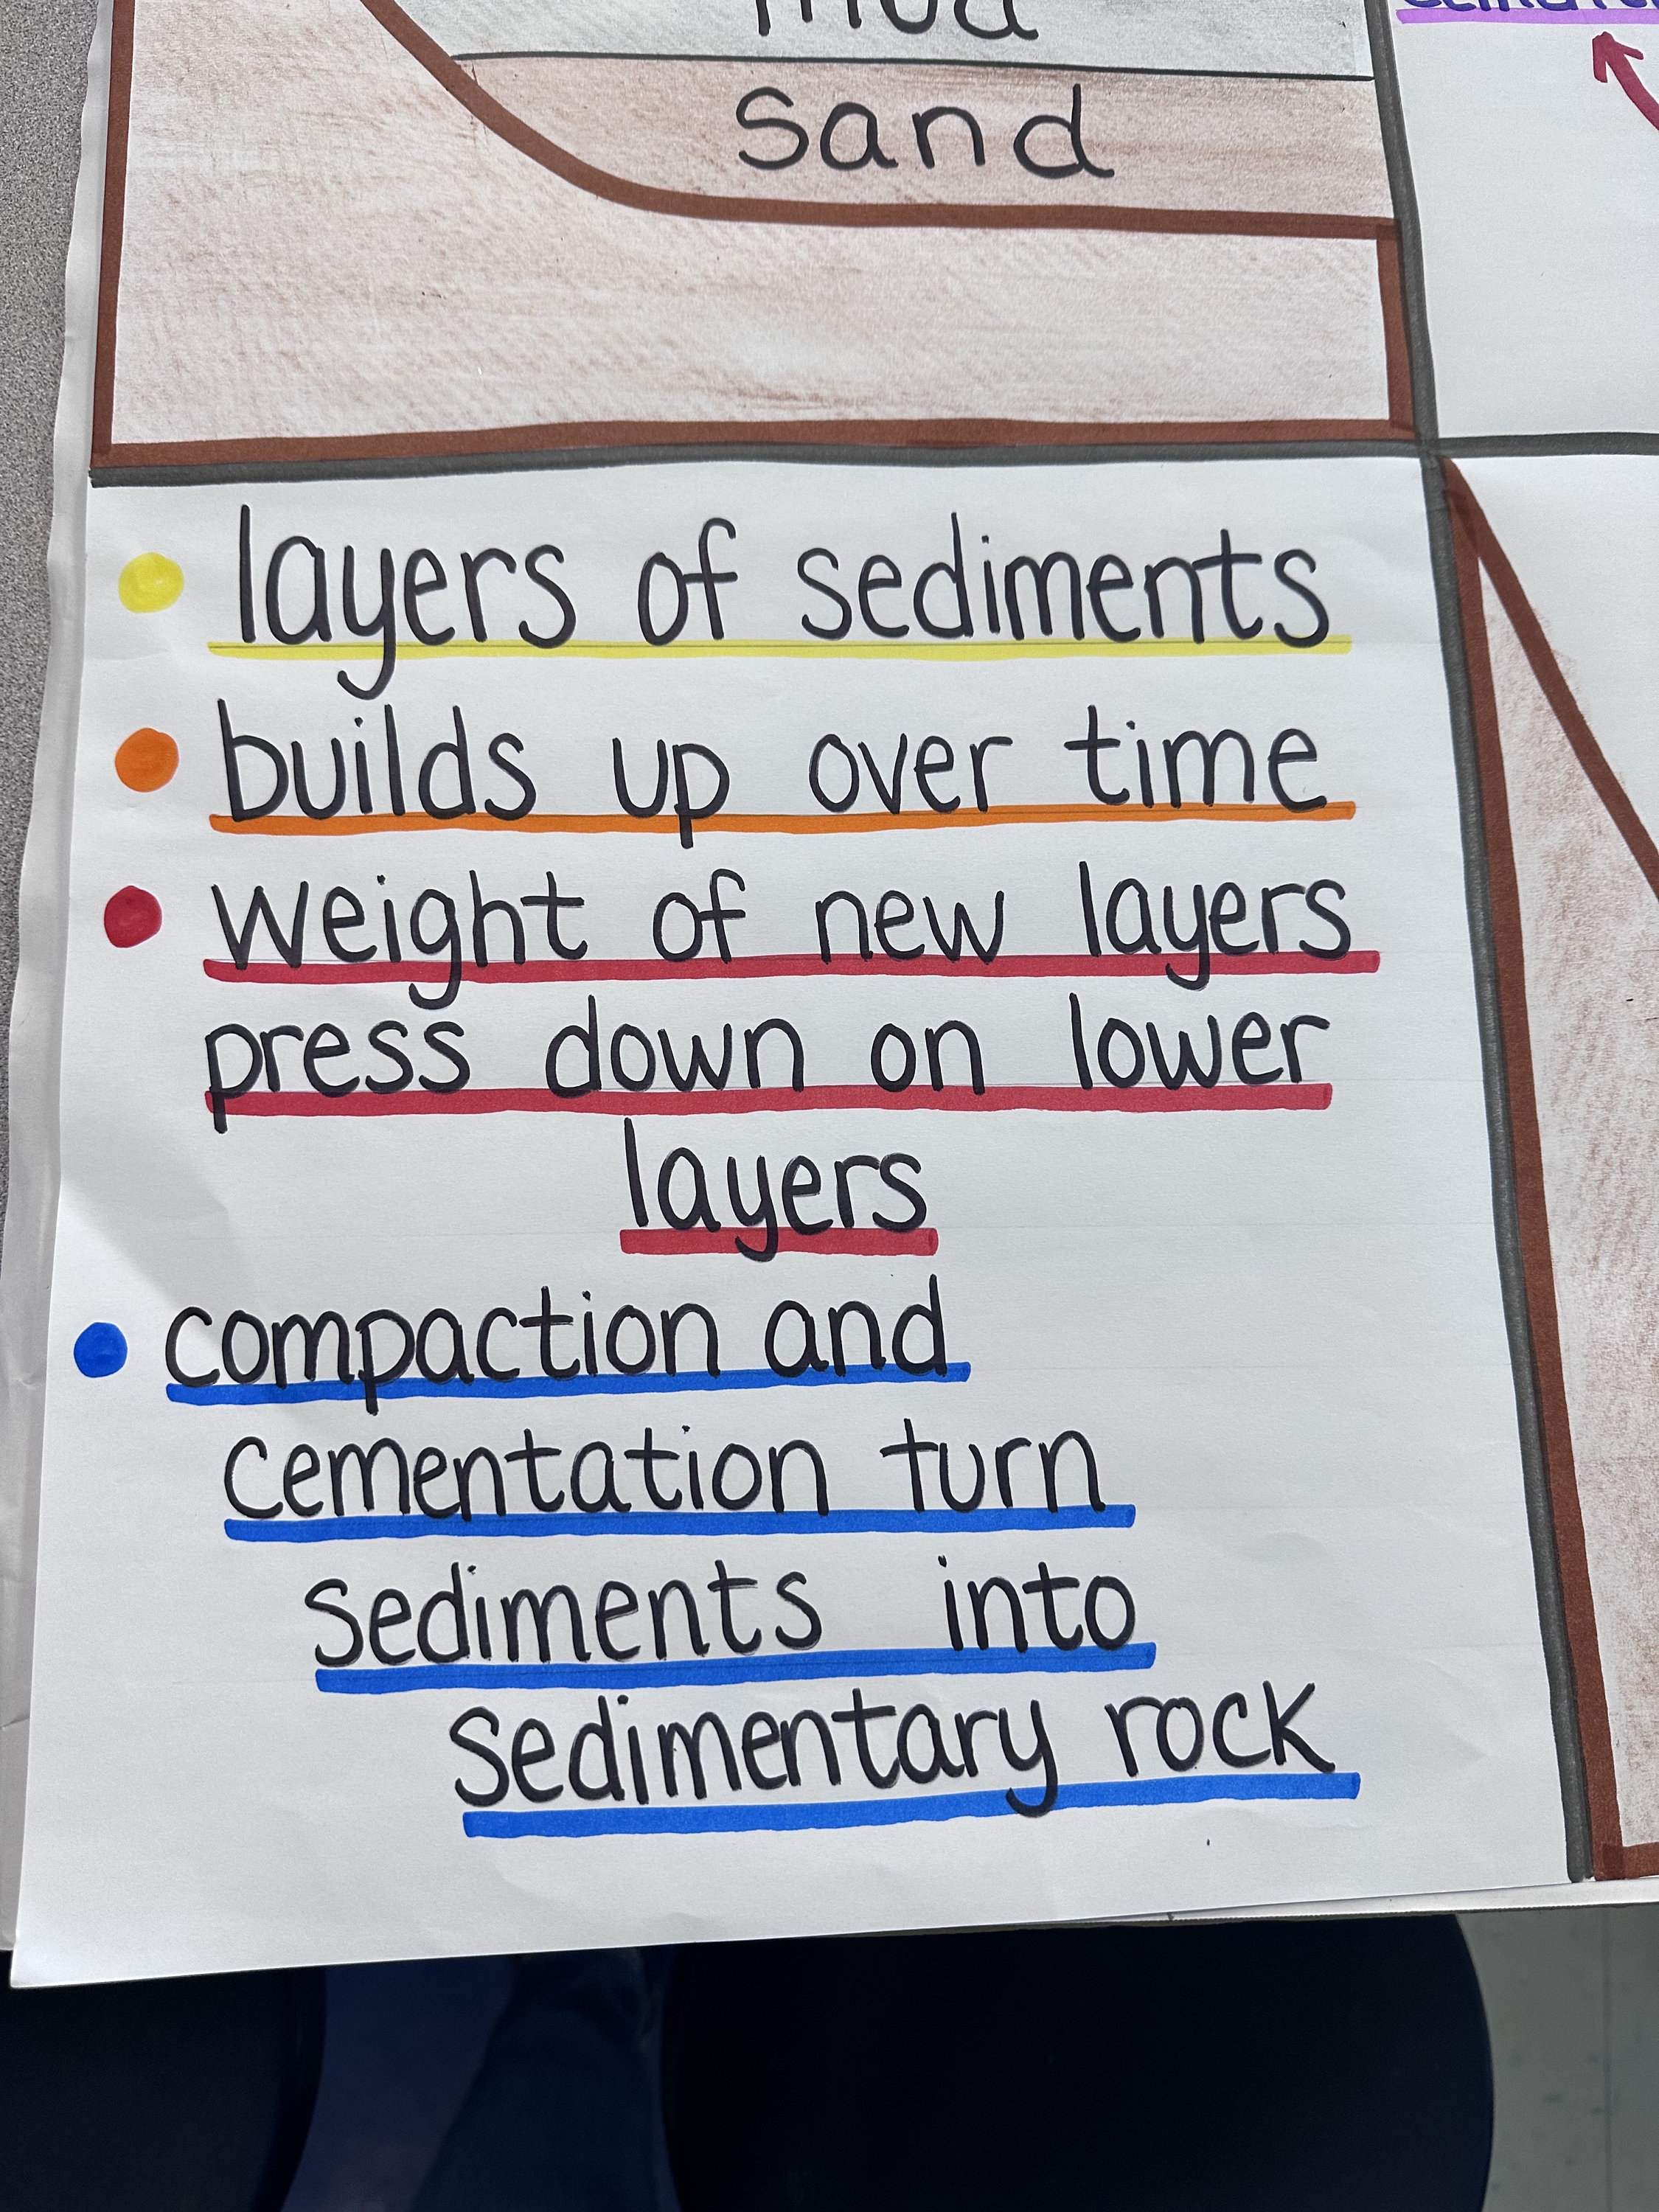 mud
sand
layers of sediments
builds up over time
weight of new layers
press down on lower
layers
compaction and
cementation turn
sediments into
sedimentary rock